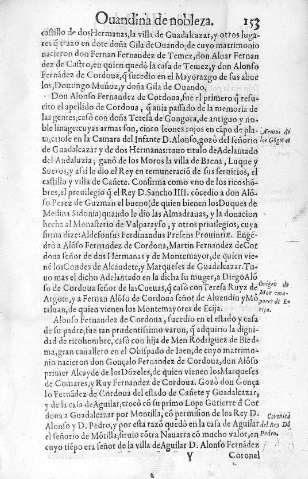 Ouandina de nobleza. 153
castillo de dos Hermanas, la villa de Guadalcazar, y otros lugares
q̃ traxo en dote doña Gila de Ouando, de cuyo matrimonio
nacieron don Fernan Fernandez de Temez, don Aluar Fernandez
de Castro, en quien quedò la casa de Temez, y don Alonso
Fernãdez de Cordoua, q̃ sucedio en el Mayorazgo de sus abuelos,
Domingo Muñoz, y doña Gila de Ouando.
Don Alonso Fernandez de Cordoua, fue el primero q̃
el apellido de Cordoua, q̃ auia passado de la memoria de las
gentes, casò con doña Teresa de Gongora, de antiguo y noble
linage: cuyas armas son, cinco leones roxos en cãpo de plata,
criose en la Camara del Infante D. Alonso, gozò del señorio
de Guadalcazar y de dos Hermanas: tuuo titulo de Adelantado
del Andaluzia, ganò de los Moros la villa de Baena, Luque y
Sueros, y asi le dio el Rey en remuneracion de sus seruicios, el
castillo y villa de Cañete. Confirma como vno de los ricoshõbres,
el preuilegio q̃ el Rey D. Sancho IIII. cõcedio a don Alõso
Perez de Guzman el bueno (de quien vienen los Duques de
Medina Sidonia) quando le dio las Almadrauas, y la donacion
hecha al Monasterio de Valparayso, y otros priuilegios, cuya
firma dize: Aldefonsus Ferdinandus Præsens Prouintiæ. Engẽdrò
a Alõso Fernandez de Cordoua, Martin Fernandez de Cordoua
señor de dos Hermanas y de Montemayor, de quien vienẽ
los Condes de Alcaudete, y Marqueses de Guadalcazar. Tuuo
mas el dicho Adelantado en la dicha su muger, a Diego Alõso
de Cordoua señor de las Cueuas, q̃ casò con Teresa Ruyz de
Argote, y a Fernan Alõso de Cordoua señor de Alizndin y Mõtaluan,
de quien vienen los Montemayores de Ecija.
Alonso Fernandez de Cordoua, sucedio en el estado y casa
de su padre, fue tan prudentissimo varon, q̃ adquirio la dignidad
de ricohombre, casò con hija de Men Rodriguez de Biedma,
gran cauallero en el Obispado de Iaen, de cuyo matrimonio
nacieron don Gonçalo Fernandez de Cordoua, don Alõso
primer Alcayde de los Dõzeles, de quien vienen los Marqueses
de Comares, y Ruy Fernandez de Cordoua. Gozò don Gonçalo
Fernandez de Cordoua del estado de Cañete y Guadalcazar,
y de la casa de Aguilar, trocò cõ su primo Lope Gutierrez d̃ Cordoua
a Guadalcazar por Montilla, cõ permission de los Rey D.
Alonso y D. Pedro, y por esta razò quedò en la casa de Aguilar
el señorio de Mõtilla, siruio cõtra Nauarra cõ mucho valor, en
cuyo tiẽpo era señor de la villa de Aguilar D. Alonso Fernandez
Y Coronel
Armas de
los Gõgoras
Origen de
Montemayores
de Ecija.
Coronica
del Rey D.
Pedro.